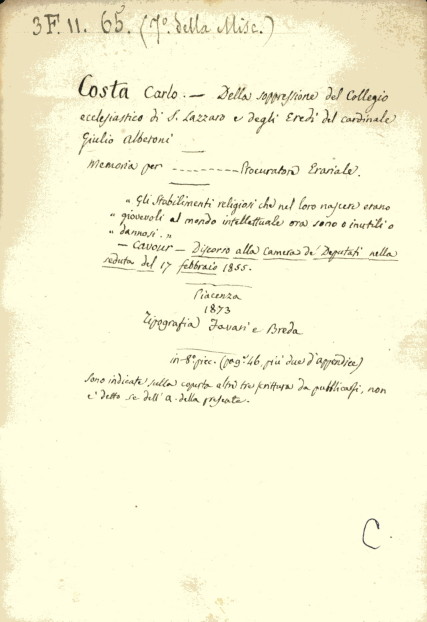 3F. 11. 65. (7º. della Misc.)
Costa Carlo. — Della soppressione del Collegio
ecclesiastico di S. Lazzaro e degli Eredi del cardinale
Giulio Alberoni
Memoria per ---------- Procuratore Erariale.
" Gli Stabilimenti religiosi che nel loro nascere erano
" giovevoli al mondo intellettuale ora sono o inutili o
" dannosi. "
— Cavour — Discorso alla Camera de' Deputati nella
seduta del 17 febbraio 1855.
Piacenza
1873
Tipografia Favari e Breda
in-8º picc. (pag.ⁱ 46, più due d'appendice)
Sono indicate sulla coperta altre tre scritture da pubblicarsi, non
è detto se dell'A. della presente.
C